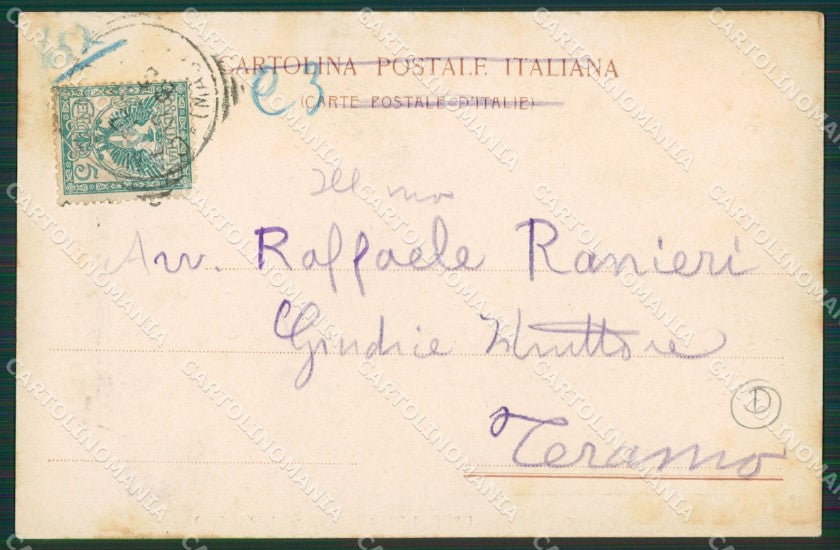 CARTOLINA POSTALE ITALIANA
(CARTE POSTALE D'ITALIE)
C3
5
Ill mo
Avv. Raffaele Ranieri
Giudice Istruttore
Teramo
D
CARTOLINOMANIA